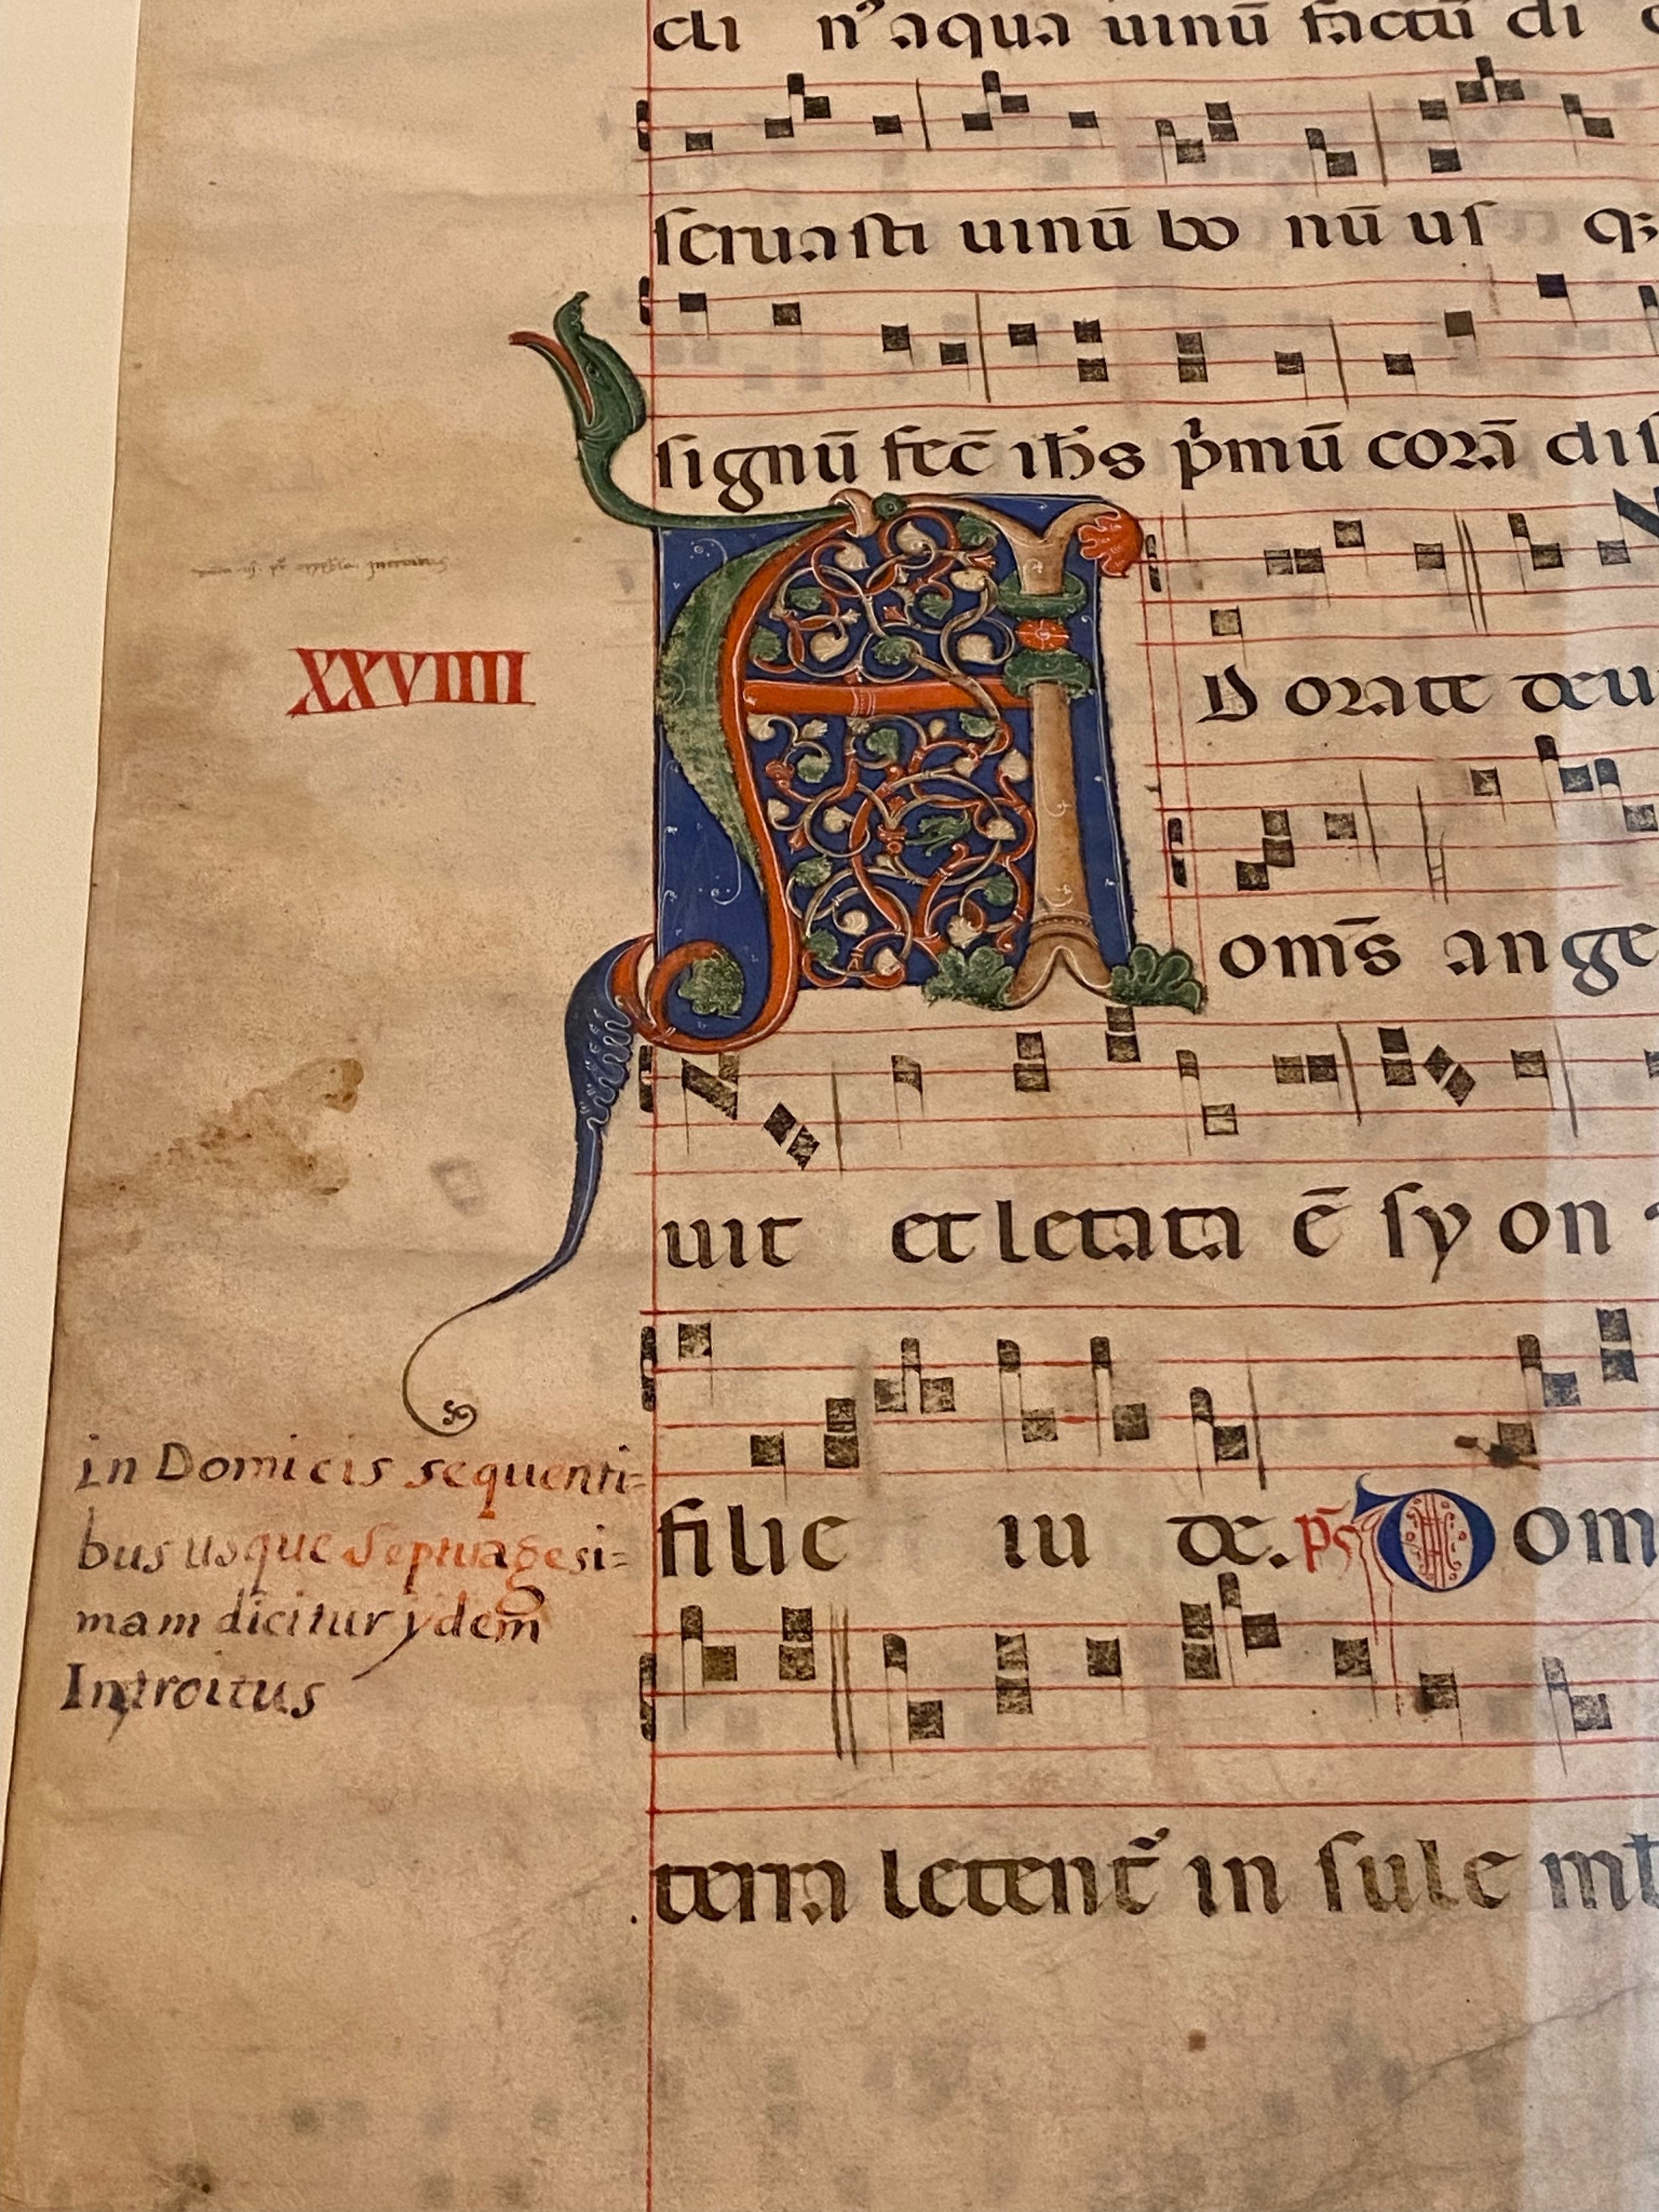 di nʼaqua uinū factū di
seruasti uinū bo nū us qꝫ
signū fec̄ ih̄s pʼmū corā dis
XXVIIII
A D orate deu
om̄s ange
uit et letata ē sy on
filie iu de. ps̄ Dom
terra letentʼ in sule mł
in Domicis sequenti=
bus usque septuagesi=
mam dicitur ydem̄
Introitus